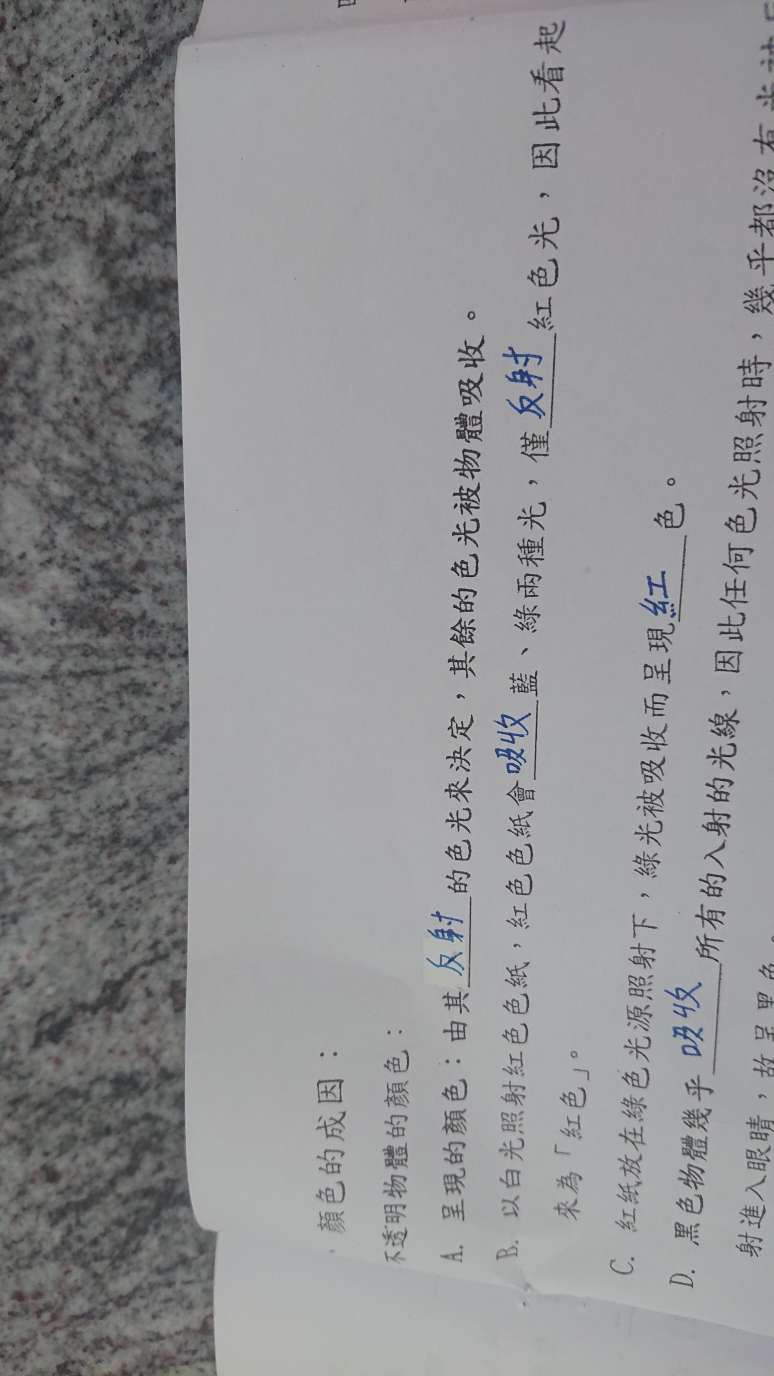 顏色的成因：
不透明物體的顏色：
A. 呈現的顏色：由其反射的色光來決定，其餘的色光被物體吸收。
B. 以白光照射紅色色紙，紅色色紙會吸收藍、綠兩種光，僅反射紅色光，因此看起
來為「紅色」。
C. 紅紙放在綠色光源照射下，綠光被吸收而呈現紅色。
D. 黑色物體幾乎吸收所有的入射的光線，因此任何色光照射時，幾乎都沒有光
射進入眼睛，故呈黑色。